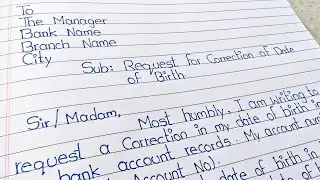 To
The Manager
Bank Name
Branch Name
City
Sub: Request for Correction of Date
of Birth
Sir/Madam,
Most humbly, I am writing to
request a Correction in my date of birth in
bank account records. My account num
Account No).
date of birth in